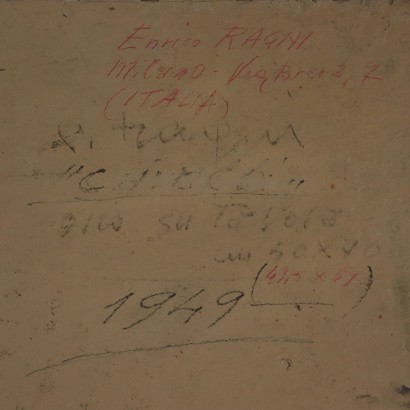 Enrico RAGNI
Milano - Via Brera, 7
(ITALIA)
E. Ragni
olio su Tavola
cm 50x70
(49,5 x 69)
1949